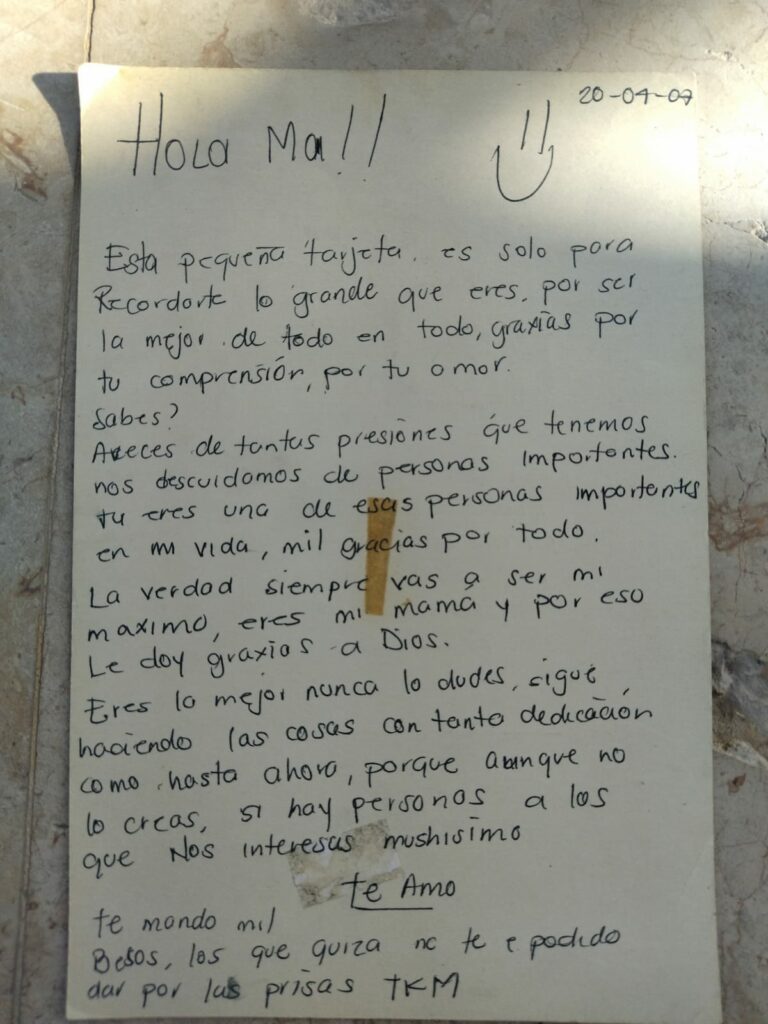 20-04-07
Hola Ma!!
Esta pequeña tarjeta, es solo para
Recordarte lo grande que eres, por ser
la mejor de todo en todo, graxias por
tu comprensión, por tu amor.
Sabes?
Aveces de tantas presiones que tenemos
nos descuidamos de personas importantes.
tu eres una de esas personas importantes
en mi vida, mil gracias por todo.
La verdad siempre vas a ser mi
maximo, eres mi mamá y por eso
Le doy graxias a Dios.
Eres la mejor nunca lo dudes, sigue
haciendo las cosas con tanta dedicación
como hasta ahora, porque aunque no
lo creas, si hay personas a los
que Nos interesas mushisimo
te Amo
te mando mil
Besos, los que quiza no te e podido
dar por las prisas TKM